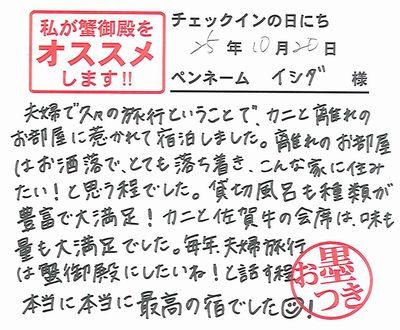 私が蟹御殿を
オススメ
します!!
チェックインの日にち
25年10月20日
ペンネーム イシダ 様
夫婦で久々の旅行ということで、カニと離れの
お部屋に惹かれて宿泊しました。離れのお部屋
はお洒落で、とても落ち着き、こんな家に住み
たい!と思う程でした。貸切風呂も種類が
豊富で大満足!カニと佐賀牛の会席は、味も
量も大満足でした。毎年、夫婦旅行
は蟹御殿にしたいね!と話す程
本当に本当に最高の宿でした☺!
お墨つき